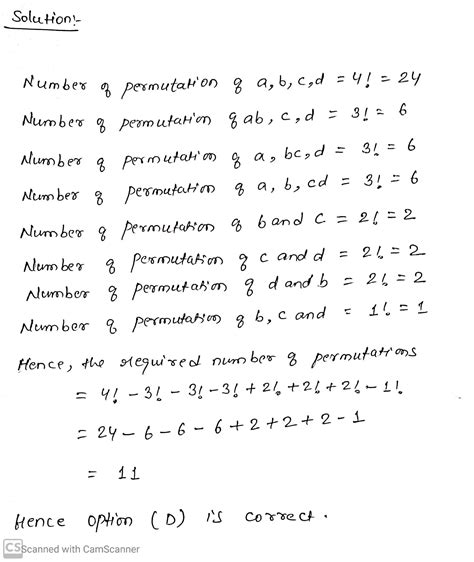 Solution:-
Number of permutation of a, b, c, d = 4! = 24
Number of permutation of ab, c, d = 3! = 6
Number of permutation of a, bc, d = 3! = 6
Number of permutation of a, b, cd = 3! = 6
Number of permutation of b and c = 2! = 2
Number of permutation of c and d = 2! = 2
Number of permutation of d and b = 2! = 2
Number of permutation of b, c and = 1! = 1
Hence, the required number of permutations
= 4! - 3! - 3! - 3! + 2! + 2! + 2! - 1!
= 24 - 6 - 6 - 6 + 2 + 2 + 2 - 1
= 11
Hence option (D) is correct.
CS Scanned with CamScanner